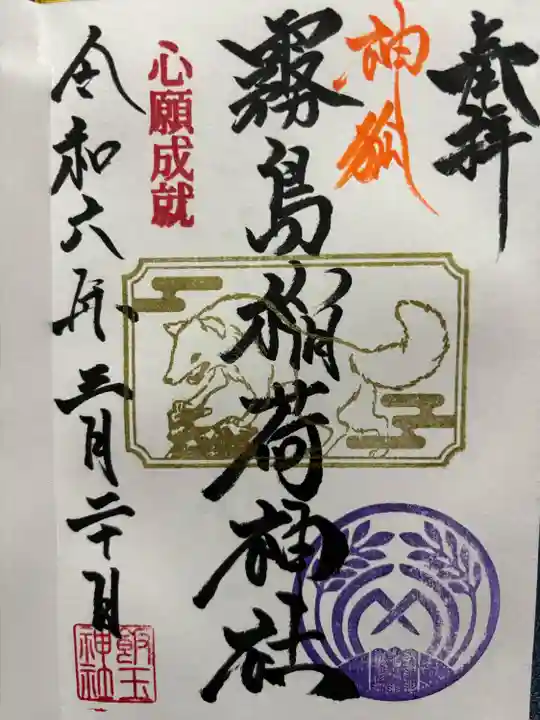 奉拝
神狐
霧島稲荷神社
心願成就
令和六年三月二十日
飯玉神社